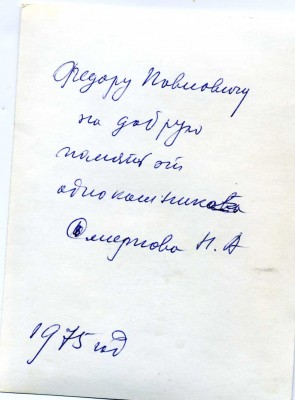 Федору Павловичу
на добрую
память от
однокашника
Смирнова Н. А
1975 год